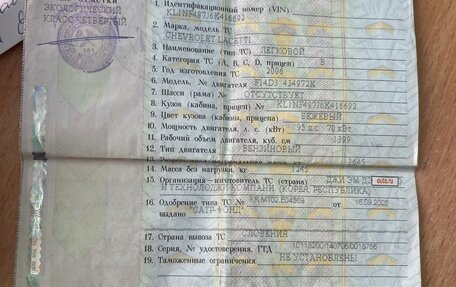 ЭКОЛОГИЧЕСКИЙ
КЛАСС ЧЕТВЕРТЫЙ
1. Идентификационный номер (VIN)
KL1NF487J6K416692
2. Марка, модель ТС
CHEVROLET LACETTI
3. Наименование (тип ТС) ЛЕГКОВОЙ
4. Категория ТС (А, В, С, D, прицеп) B
5. Год изготовления ТС 2006
6. Модель, № двигателя F14D3 434972K
7. Шасси (рама) № ОТСУТСТВУЕТ
8. Кузов (кабина, прицеп) № KL1NF487J6K416692
9. Цвет кузова (кабины, прицепа) БЕЖЕВЫЙ
10. Мощность двигателя, л. с. (кВт) 95 л.с. 70 кВт.
11. Рабочий объем двигателя, куб. см 1399
12. Тип двигателя БЕНЗИНОВЫЙ
масса, кг 1645
14. Масса без нагрузки, кг 1245
15. Организация—изготовитель ТС (страна) ДЖИ ЭМ
И ТЕХНОЛОДЖИ КОМПАНИ (КОРЕЯ, РЕСПУБЛИКА)
16. Одобрение типа ТС № KR.MT02.E04369 от 16.09.2005
выдано "САТР-ФОНД"
17. Страна вывоза ТС СЛОВЕНИЯ
18. Серия, № удостоверения, ГТД 10118200/140706/0018766
19. Таможенные ограничения НЕ УСТАНОВЛЕНЫ